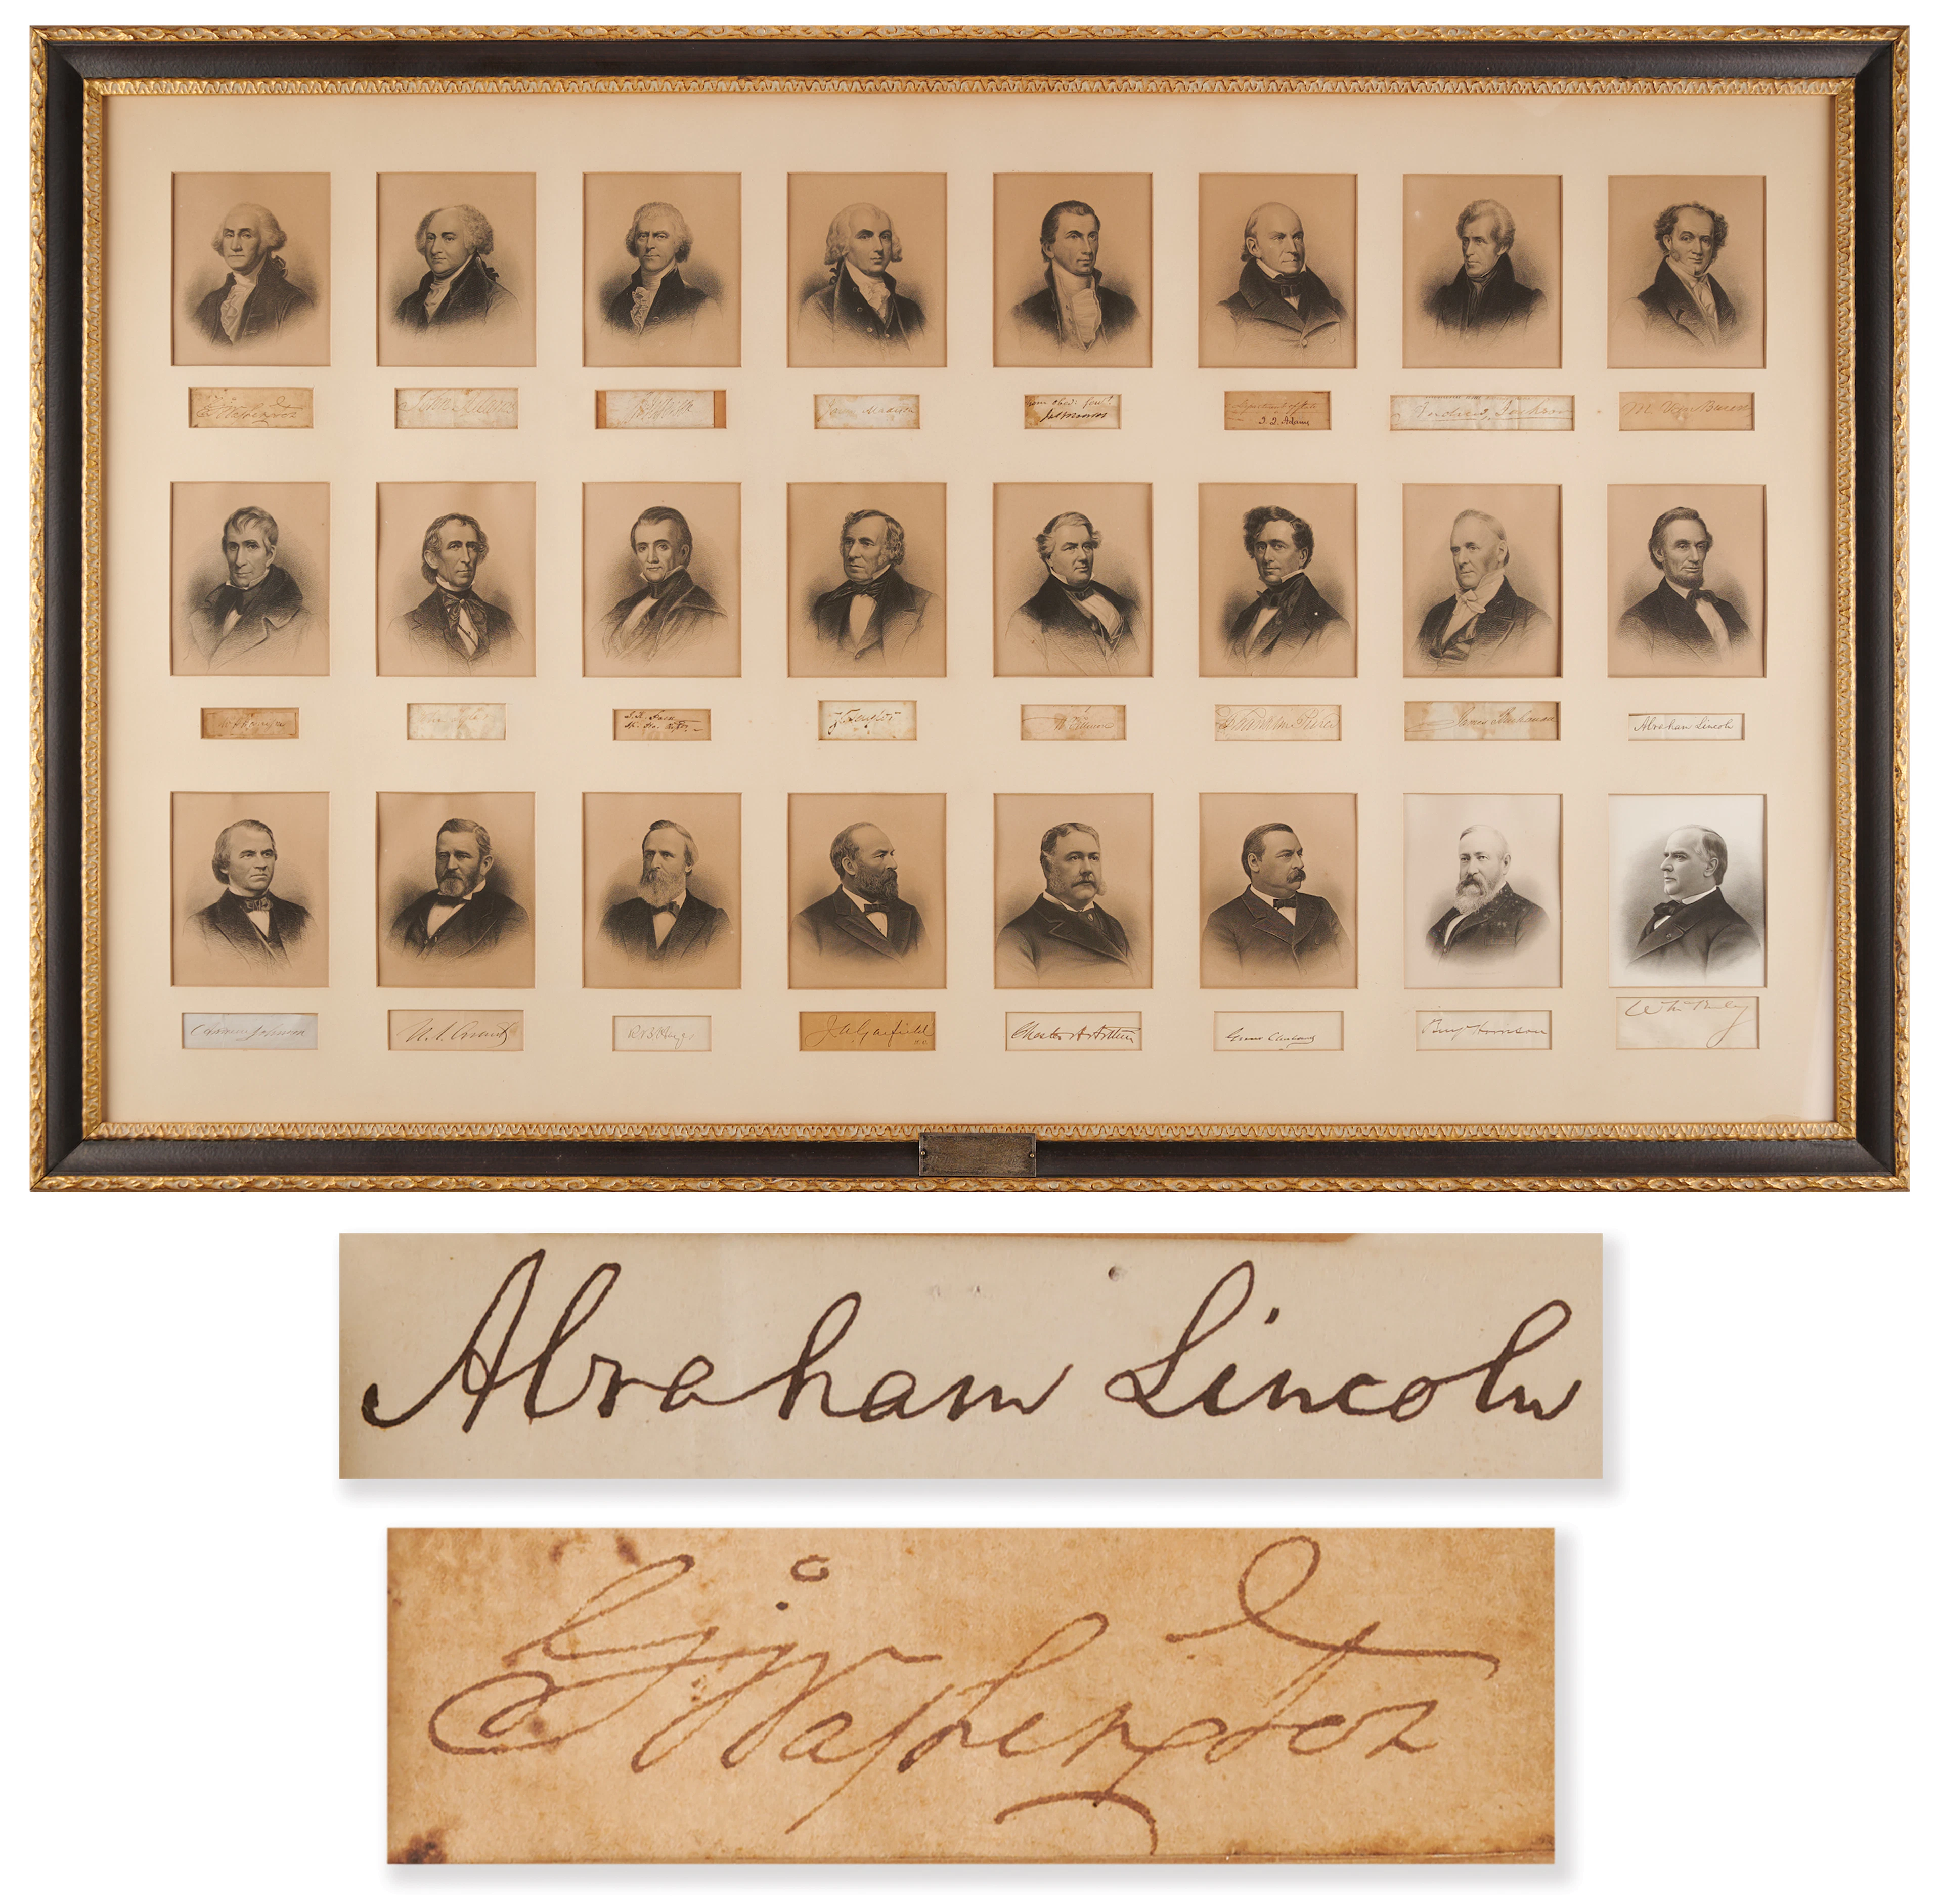 G Washington
John Adams
James Madison
Your obed. Serv.
Jas Monroe
Department of State
J. Q. Adams
Andrew Jackson
M. Van Buren
W H Harrison
John Tyler
Z Taylor
Franklin Pierce
James Buchanan
Abraham Lincoln
Andrew Johnson
U. S. Grant
R B Hayes
J A Garfield
Chester A Arthur
Grover Cleveland
Benj Harrison
Wm McKinley
Abraham Lincoln
G Washington